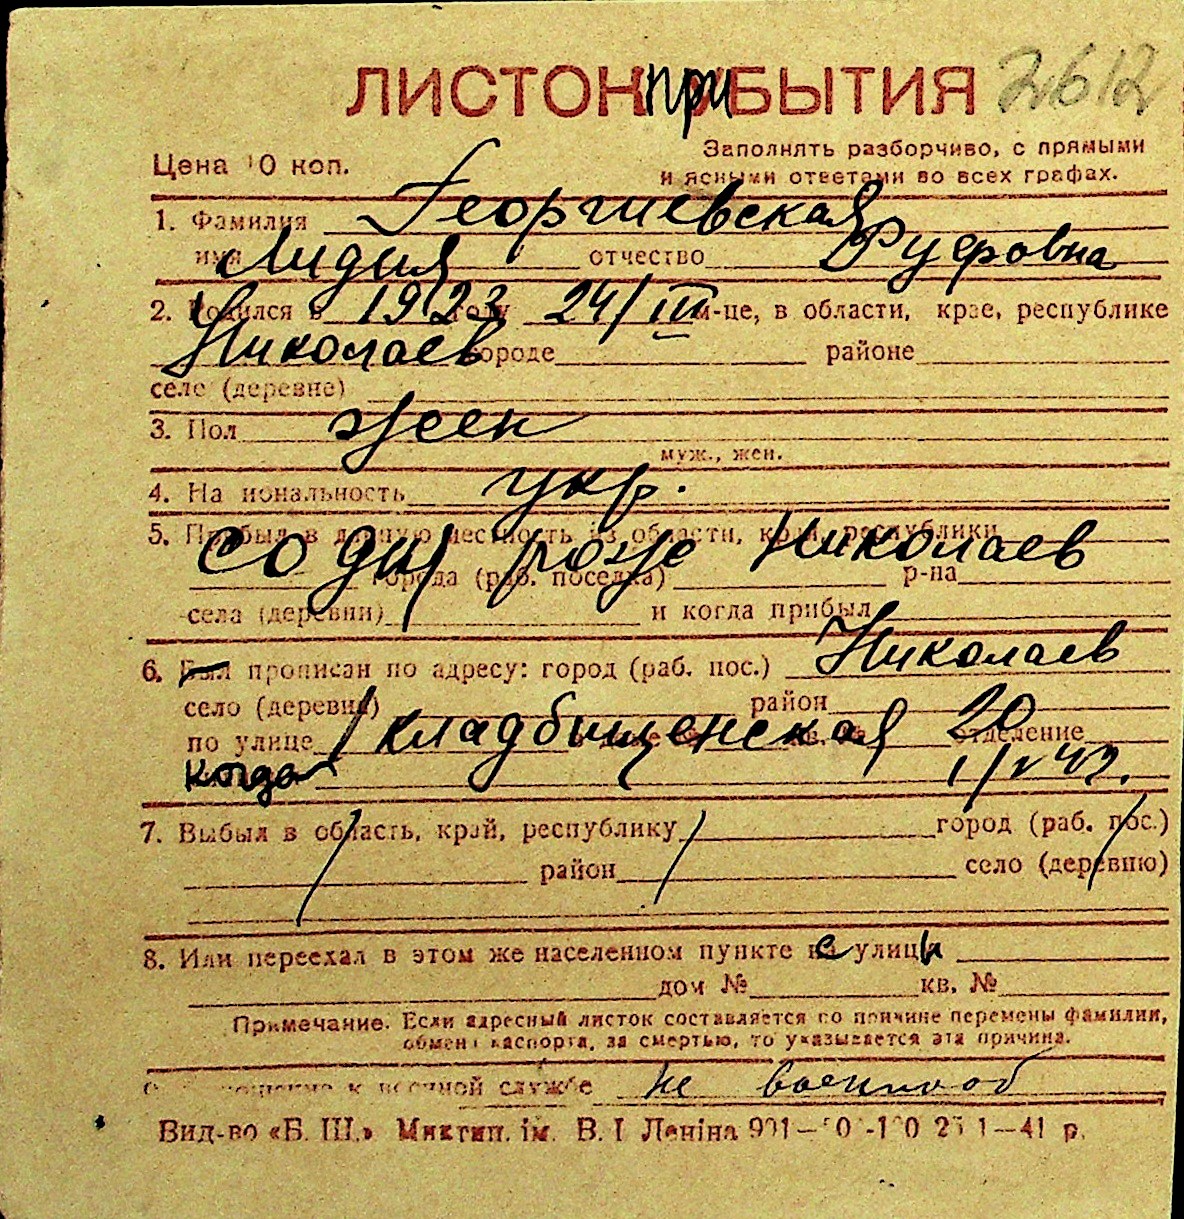 ЛИСТОК ПРИБЫТИЯ 2612
Цена 10 коп.
Заполнять разборчиво, с прямыми
и ясными ответами во всех графах.
1. Фамилия Георгиевская
имя Лидия отчество
2. Родился в 1923 году 24/III м-це, в области, крае, республике
Николаев городе районе
селе (деревне)
3. Пол жен
муж., жен.
4. Национальность укр.
5. Прибыл в данную местность из области, края, республики
со дня рожд Николаев
города (раб. поселка) р-на
села (деревни) и когда прибыл
6. Был прописан по адресу: город (раб. пос.) Николаев
село (деревня) район
по улице Кладбищенская 20 отделение
когда 1/V 43.
7. Выбыл в область, край, республику город (раб. пос.)
район село (деревню)
8. Или переехал в этом же населенном пункте с улицы
дом № кв. №
Примечание. Если адресный листок составляется по причине перемены фамилии,
обмена паспорта, за смертью, то указывается эта причина.
Отношение к военной службе не военнооб
Вид-во «Б. Ш.» Миктип. ім. В. І Леніна 1—41 р.